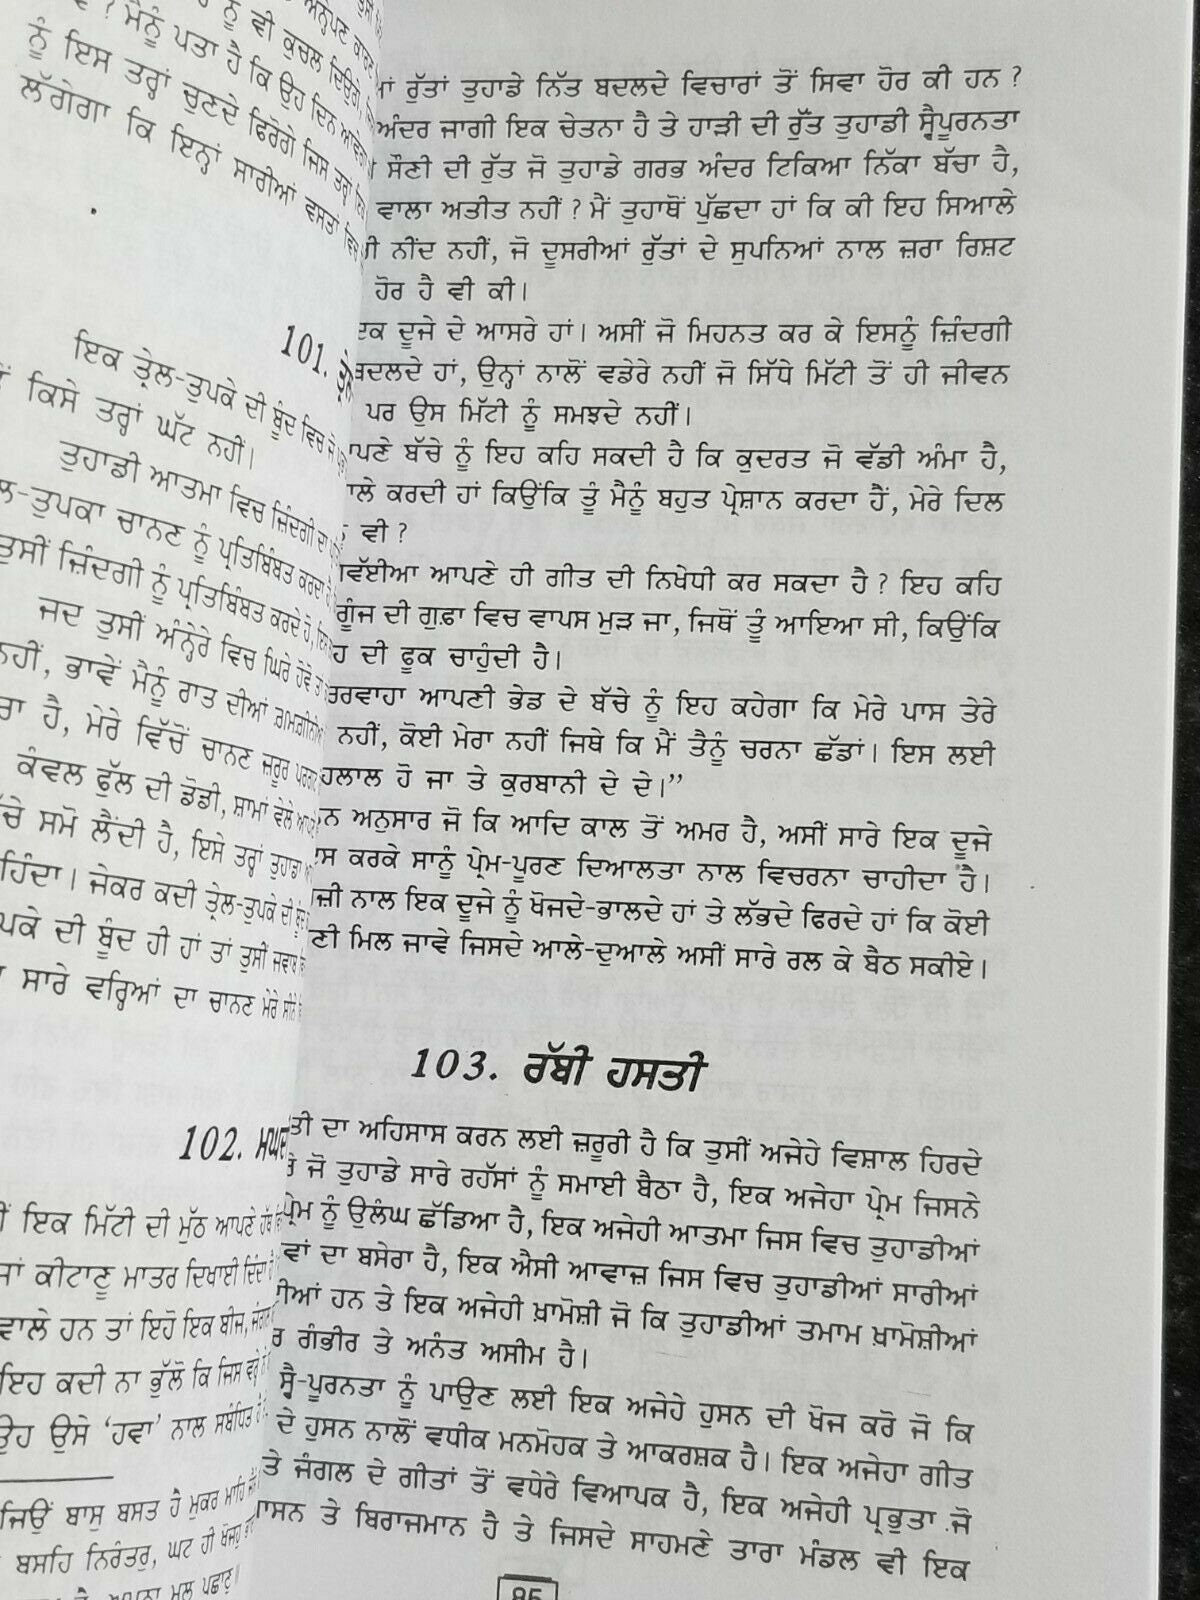 ਨੂੰ ਵੀ ਕੁਚਲ ਦਿਉਗੇ,
? ਮੈਨੂੰ ਪਤਾ ਹੈ ਕਿ ਉਹ ਦਿਨ ਆਵੇਗਾ
ਨੂੰ ਇਸ ਤਰ੍ਹਾਂ ਚੁਣਦੇ ਫਿਰੋਗੇ ਜਿਸ ਤਰ੍ਹਾਂ
ਲੱਗੇਗਾ ਕਿ ਇਨ੍ਹਾਂ ਸਾਰੀਆਂ ਵਸਤਾਂ ਵਿਚ
101.
ਇਕ ਤ੍ਰੇਲ-ਤੁਪਕੇ ਦੀ ਬੂੰਦ ਵਿਚ ਜੋ
ਕਿਸੇ ਤਰ੍ਹਾਂ ਘੱਟ ਨਹੀਂ।
ਤੁਹਾਡੀ ਆਤਮਾ ਵਿਚ ਜ਼ਿੰਦਗੀ ਦਾ
ਤੁਪਕਾ ਚਾਨਣ ਨੂੰ ਪ੍ਰਤਿਬਿੰਬਤ ਕਰਦਾ ਹੈ
ਤੁਸੀਂ ਜ਼ਿੰਦਗੀ ਨੂੰ ਪ੍ਰਤਿਬਿੰਬਤ ਕਰਦੇ ਹੋ,
ਜਦ ਤੁਸੀਂ ਅੰਨ੍ਹੇਰੇ ਵਿਚ ਘਿਰੇ ਹੋਵੋ ਤਾਂ
ਨਹੀਂ, ਭਾਵੇਂ ਮੈਨੂੰ ਰਾਤ ਦੀਆਂ ਗ਼ਮਗ਼ੀਨੀਆਂ
ਹੈ, ਮੇਰੇ ਵਿੱਚੋਂ ਚਾਨਣ ਜ਼ਰੂਰ
ਕੰਵਲ ਫੁੱਲ ਦੀ ਡੋਡੀ, ਸ਼ਾਮਾਂ ਵੇਲੇ
ਸਮੋ ਲੈਂਦੀ ਹੈ, ਇਸੇ ਤਰ੍ਹਾਂ ਤੁਹਾਡਾ
ਜੇਕਰ ਕਦੀ ਤ੍ਰੇਲ-ਤੁਪਕੇ ਦੀ ਬੂੰਦ
ਦੀ ਬੂੰਦ ਹੀ ਹਾਂ ਤਾਂ ਤੁਸੀਂ ਜਵਾਬ
ਸਾਰੇ ਵਰ੍ਹਿਆਂ ਦਾ ਚਾਨਣ ਮੇਰੇ ਸੀਨੇ
102.
ਇਕ ਮਿੱਟੀ ਦੀ ਮੁੱਠ ਆਪਣੇ ਹੱਥ
ਜਾਂ ਕੀਟਾਣੂ ਮਾਤਰ ਦਿਖਾਈ ਦਿੰਦਾ ਹੈ
ਵਾਲੇ ਹਨ ਤਾਂ ਇਹੋ ਇਕ ਬੀਜ,
ਇਹ ਕਦੀ ਨਾ ਭੁੱਲੋ ਕਿ ਜਿਸ
ਉਹ ਉਸੇ ‘ਹਵਾ’ ਨਾਲ ਸਬੰਧਿਤ
ਜਿਉਂ ਬਾਸੁ ਬਸਤ ਹੈ ਮੁਕਰ ਮਾਹਿ
ਬਸਹਿ ਨਿਰੰਤਰੁ, ਘਟ ਹੀ ਖੋਜਹੁ
ਰੁੱਤਾਂ ਤੁਹਾਡੇ ਨਿੱਤ ਬਦਲਦੇ ਵਿਚਾਰਾਂ ਤੋਂ ਸਿਵਾ ਹੋਰ ਕੀ ਹਨ ?
ਅੰਦਰ ਜਾਗੀ ਇਕ ਚੇਤਨਾ ਹੈ ਤੇ ਹਾੜੀ ਦੀ ਰੁੱਤ ਤੁਹਾਡੀ ਸ੍ਵੈਪੂਰਨਤਾ
ਸੌਣੀ ਦੀ ਰੁੱਤ ਜੋ ਤੁਹਾਡੇ ਗਰਭ ਅੰਦਰ ਟਿਕਿਆ ਨਿੱਕਾ ਬੱਚਾ ਹੈ,
ਵਾਲਾ ਅਤੀਤ ਨਹੀਂ ? ਮੈਂ ਤੁਹਾਥੋਂ ਪੁੱਛਦਾ ਹਾਂ ਕਿ ਕੀ ਇਹ ਸਿਆਲੇ
ਨੀਂਦ ਨਹੀਂ, ਜੋ ਦੂਸਰੀਆਂ ਰੁੱਤਾਂ ਦੇ ਸੁਪਨਿਆਂ ਨਾਲ ਜ਼ਰਾ ਰਿਸ਼ਟ
ਹੋਰ ਹੈ ਵੀ ਕੀ।
ਦੂਜੇ ਦੇ ਆਸਰੇ ਹਾਂ। ਅਸੀਂ ਜੋ ਮਿਹਨਤ ਕਰ ਕੇ ਇਸਨੂੰ ਜ਼ਿੰਦਗੀ
ਬਦਲਦੇ ਹਾਂ, ਉਨ੍ਹਾਂ ਨਾਲੋਂ ਵਡੇਰੇ ਨਹੀਂ ਜੋ ਸਿੱਧੇ ਮਿੱਟੀ ਤੋਂ ਹੀ ਜੀਵਨ
ਪਰ ਉਸ ਮਿੱਟੀ ਨੂੰ ਸਮਝਦੇ ਨਹੀਂ।
ਬੱਚੇ ਨੂੰ ਇਹ ਕਹਿ ਸਕਦੀ ਹੈ ਕਿ ਕੁਦਰਤ ਜੋ ਵੱਡੀ ਅੰਮਾ ਹੈ,
ਕਰਦੀ ਹਾਂ ਕਿਉਂਕਿ ਤੂੰ ਮੈਨੂੰ ਬਹੁਤ ਪ੍ਰੇਸ਼ਾਨ ਕਰਦਾ ਹੈਂ, ਮੇਰੇ ਦਿਲ
ਵੀ ?
ਆਪਣੇ ਹੀ ਗੀਤ ਦੀ ਨਿਖੇਧੀ ਕਰ ਸਕਦਾ ਹੈ ? ਇਹ ਕਹਿ
ਗੂੰਜ ਦੀ ਗੁਫ਼ਾ ਵਿਚ ਵਾਪਸ ਮੁੜ ਜਾ, ਜਿਥੋਂ ਤੂੰ ਆਇਆ ਸੀ, ਕਿਉਂਕਿ
ਦੀ ਫੂਕ ਚਾਹੁੰਦੀ ਹੈ।
ਆਪਣੀ ਭੇਡ ਦੇ ਬੱਚੇ ਨੂੰ ਇਹ ਕਹੇਗਾ ਕਿ ਮੇਰੇ ਪਾਸ ਤੇਰੇ
ਨਹੀਂ, ਕੋਈ ਮੇਰਾ ਨਹੀਂ ਜਿਥੇ ਕਿ ਮੈਂ ਤੈਨੂੰ ਚਰਨਾ ਛੱਡਾਂ। ਇਸ ਲਈ
ਹਲਾਲ ਹੋ ਜਾ ਤੇ ਕੁਰਬਾਨੀ ਦੇ ਦੇ।”
ਅਨੁਸਾਰ ਜੋ ਕਿ ਆਦਿ ਕਾਲ ਤੋਂ ਅਮਰ ਹੈ, ਅਸੀਂ ਸਾਰੇ ਇਕ ਦੂਜੇ
ਕਰਕੇ ਸਾਨੂੰ ਪ੍ਰੇਮ-ਪੂਰਣ ਦਿਆਲਤਾ ਨਾਲ ਵਿਚਰਨਾ ਚਾਹੀਦਾ ਹੈ।
ਨਾਲ ਇਕ ਦੂਜੇ ਨੂੰ ਖੋਜਦੇ-ਭਾਲਦੇ ਹਾਂ ਤੇ ਲੱਭਦੇ ਫਿਰਦੇ ਹਾਂ ਕਿ ਕੋਈ
ਮਿਲ ਜਾਵੇ ਜਿਸਦੇ ਆਲੇ-ਦੁਆਲੇ ਅਸੀਂ ਸਾਰੇ ਰਲ ਕੇ ਬੈਠ ਸਕੀਏ।
103. ਰੱਬੀ ਹਸਤੀ
ਦਾ ਅਹਿਸਾਸ ਕਰਨ ਲਈ ਜ਼ਰੂਰੀ ਹੈ ਕਿ ਤੁਸੀਂ ਅਜੇਹੇ ਵਿਸ਼ਾਲ ਹਿਰਦੇ
ਜੋ ਤੁਹਾਡੇ ਸਾਰੇ ਰਹੱਸਾਂ ਨੂੰ ਸਮਾਈ ਬੈਠਾ ਹੈ, ਇਕ ਅਜੇਹਾ ਪ੍ਰੇਮ ਜਿਸਨੇ
ਪ੍ਰੇਮ ਨੂੰ ਉਲੰਘ ਛੱਡਿਆ ਹੈ, ਇਕ ਅਜੇਹੀ ਆਤਮਾ ਜਿਸ ਵਿਚ ਤੁਹਾਡੀਆਂ
ਦਾ ਬਸੇਰਾ ਹੈ, ਇਕ ਐਸੀ ਆਵਾਜ਼ ਜਿਸ ਵਿਚ ਤੁਹਾਡੀਆਂ ਸਾਰੀਆਂ
ਹਨ ਤੇ ਇਕ ਅਜੇਹੀ ਖ਼ਾਮੋਸ਼ੀ ਜੋ ਕਿ ਤੁਹਾਡੀਆਂ ਤਮਾਮ ਖ਼ਾਮੋਸ਼ੀਆਂ
ਗੰਭੀਰ ਤੇ ਅਨੰਤ ਅਸੀਮ ਹੈ।
ਸ੍ਵੈ-ਪੂਰਨਤਾ ਨੂੰ ਪਾਉਣ ਲਈ ਇਕ ਅਜੇਹੇ ਹੁਸਨ ਦੀ ਖੋਜ ਕਰੋ ਜੋ ਕਿ
ਦੇ ਹੁਸਨ ਨਾਲੋਂ ਵਧੀਕ ਮਨਮੋਹਕ ਤੇ ਆਕਰਸ਼ਕ ਹੈ। ਇਕ ਅਜੇਹਾ ਗੀਤ
ਤੇ ਜੰਗਲ ਦੇ ਗੀਤਾਂ ਤੋਂ ਵਧੇਰੇ ਵਿਆਪਕ ਹੈ, ਇਕ ਅਜੇਹੀ ਪ੍ਰਭੁਤਾ ਜੋ
ਤੇ ਬਿਰਾਜਮਾਨ ਹੈ ਤੇ ਜਿਸਦੇ ਸਾਹਮਣੇ ਤਾਰਾ ਮੰਡਲ ਵੀ ਇਕ